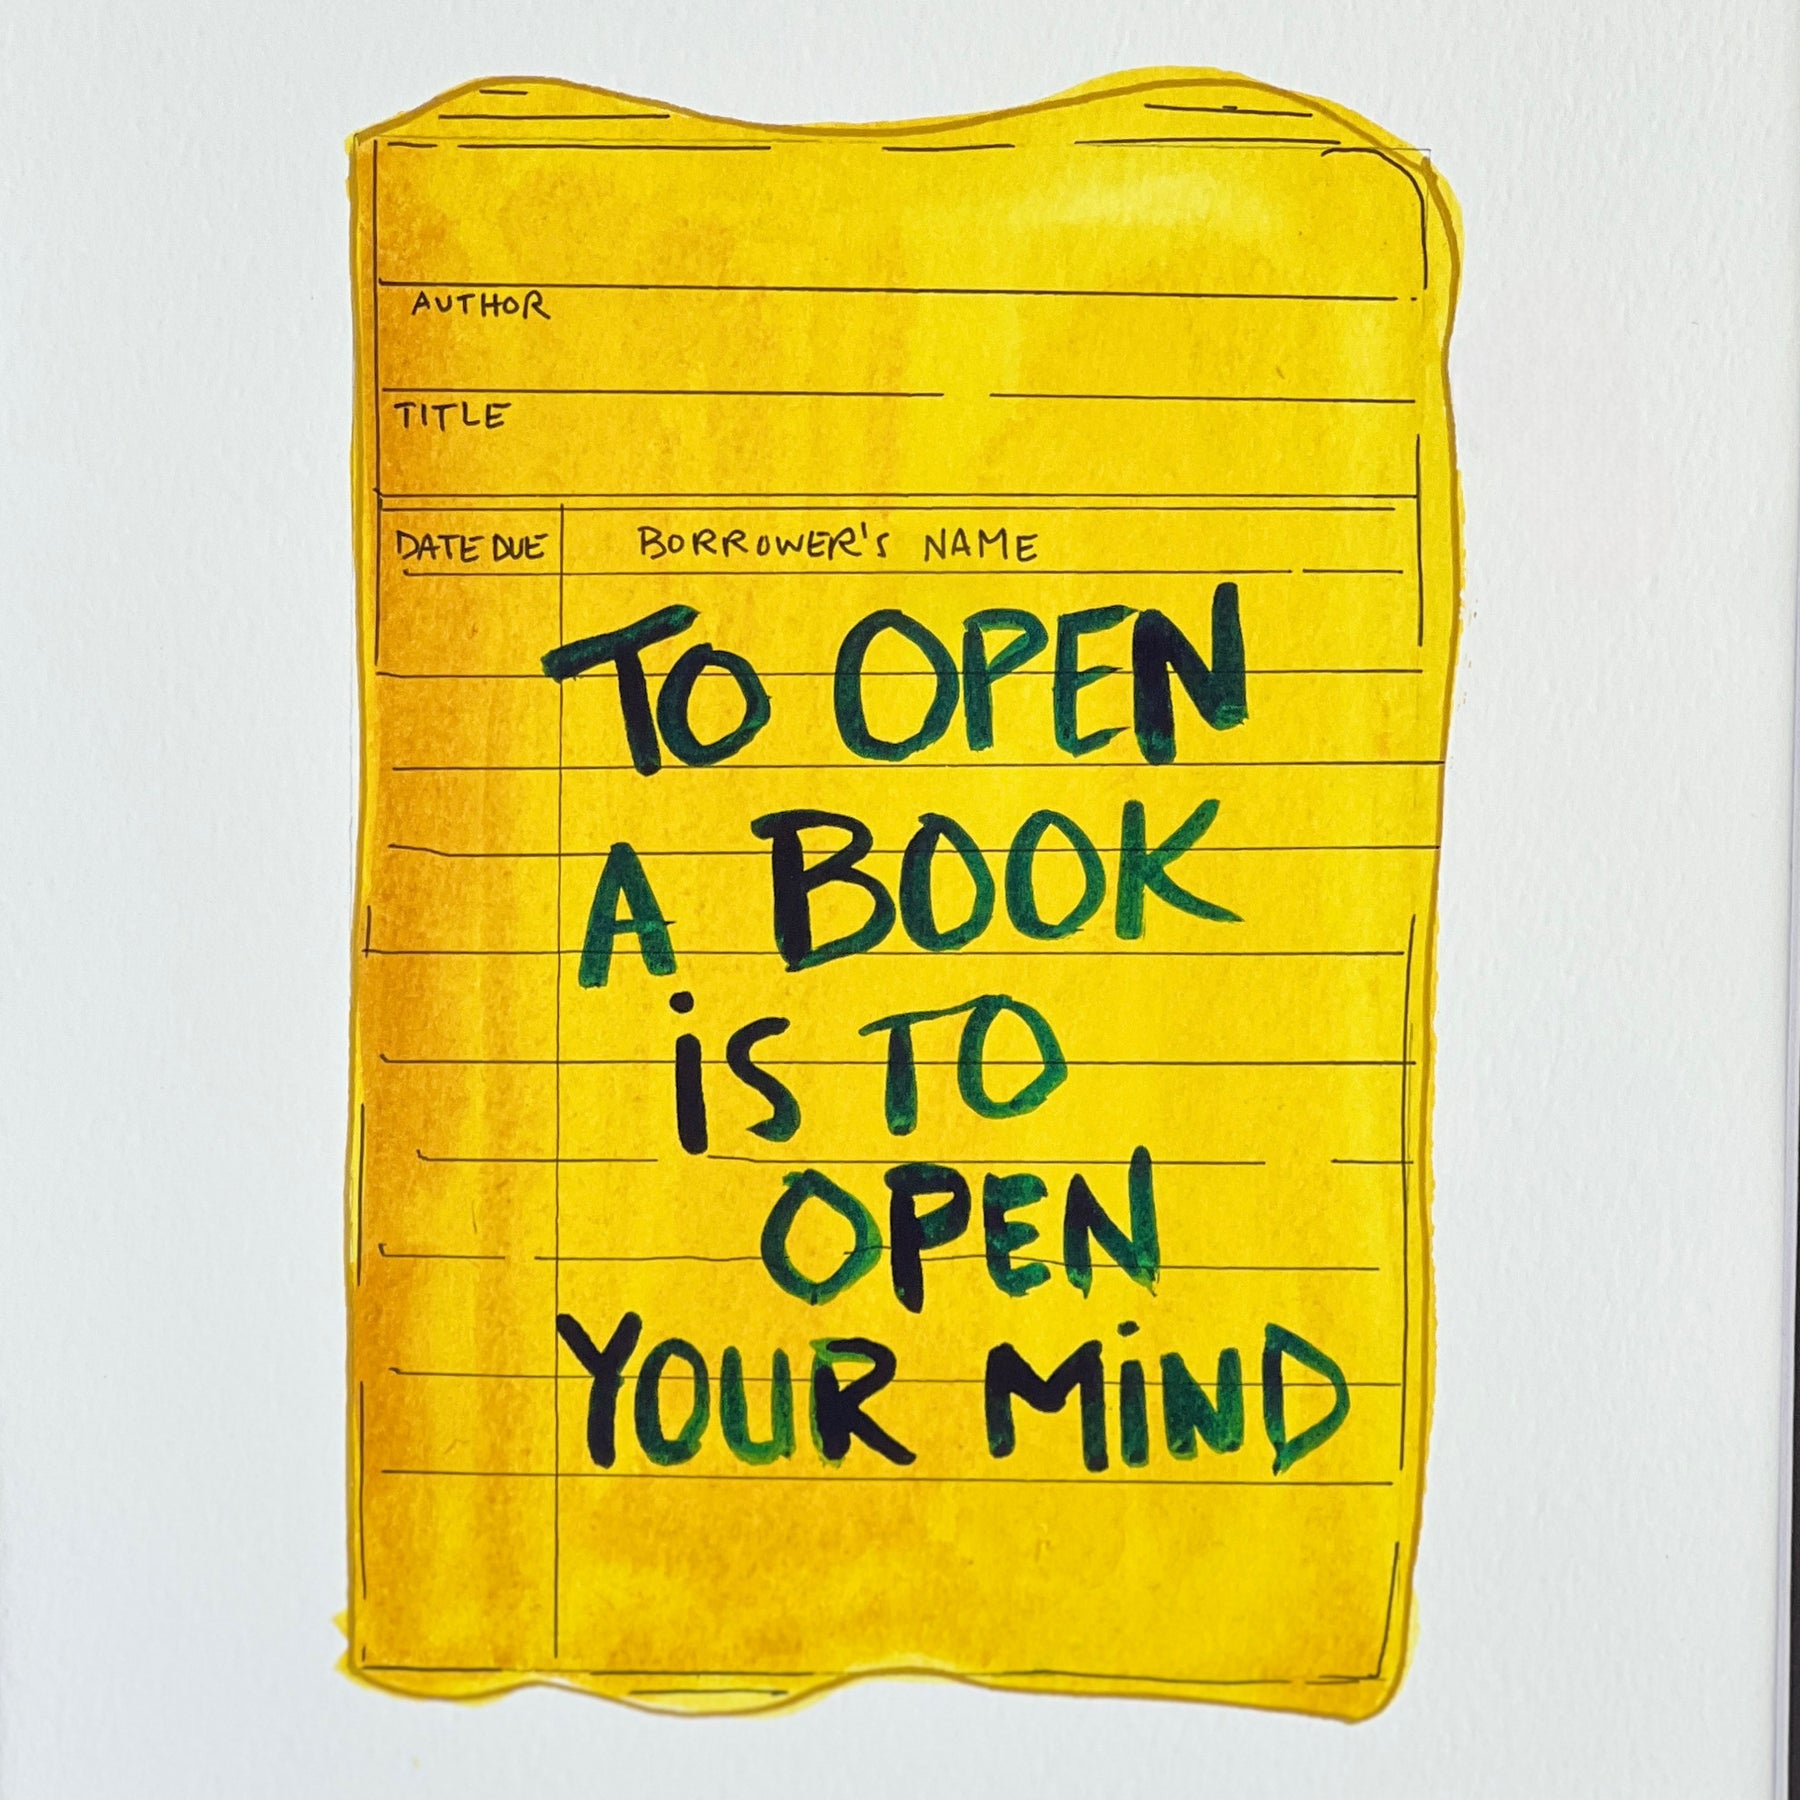 AUTHOR
TITLE
DATE DUE BORROWER'S NAME
TO OPEN
A BOOK
iS TO
OPEN
YOUR MiND